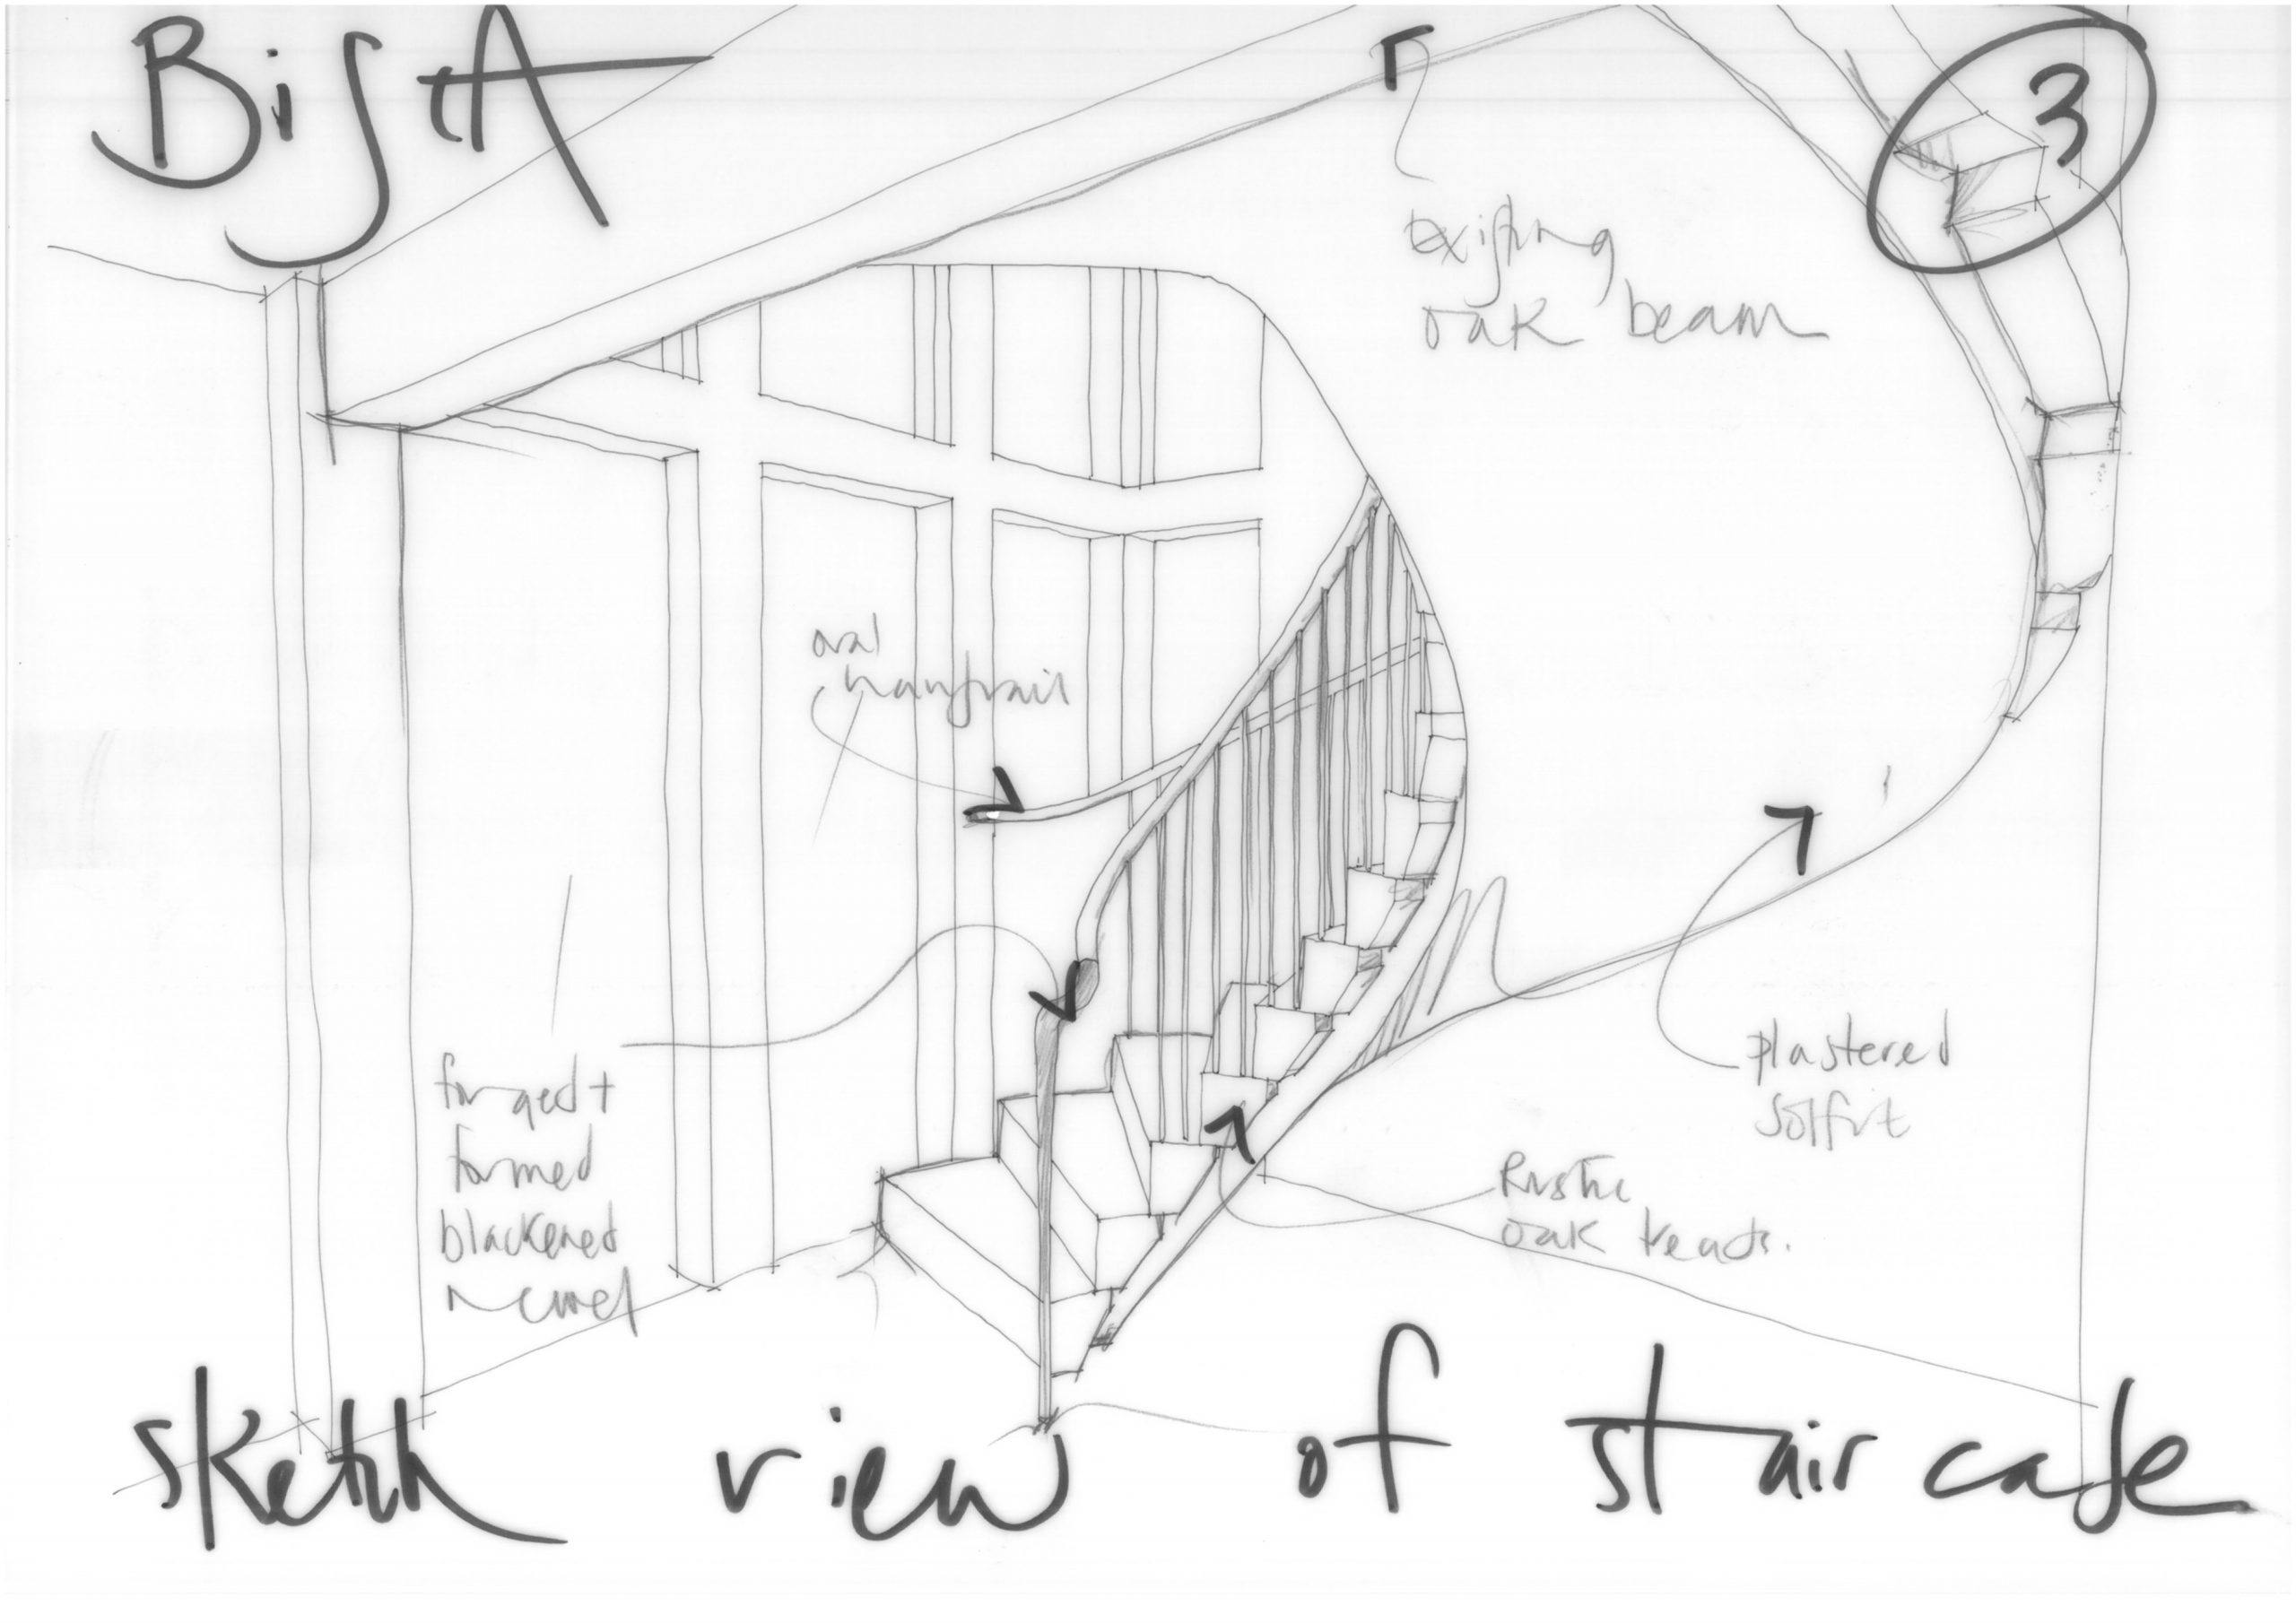 BisA
3
existing
oak beam
oval
handrail
forged +
formed
blackened
newel
plastered
soffit
Rustic
oak treads.
sketch view of staircase